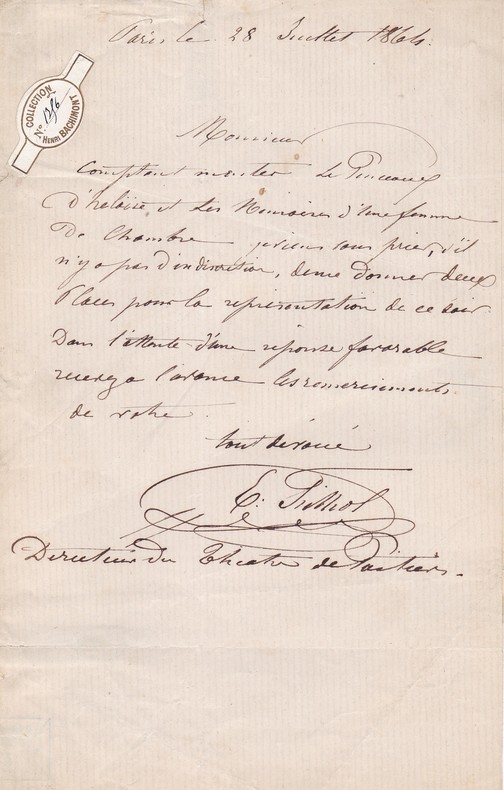 Paris le 28 Juillet 1864.
COLLECTION
N° 1286
HENRI BACHIMONT
Monsieur
Comptant monter Les Pinceaux
d'héloïse et Les Mémoires d'une femme
De Chambre je viens vous prier, s'il
n'y a pas d'indiscretion, de me donner deux
Places pour la représentation de ce soir
Dans l'attente d'une réponse favorable
recevez à l'avance les remerciements
de votre
tout dévoué
E.
Directeur du Théatre de Poitiers.